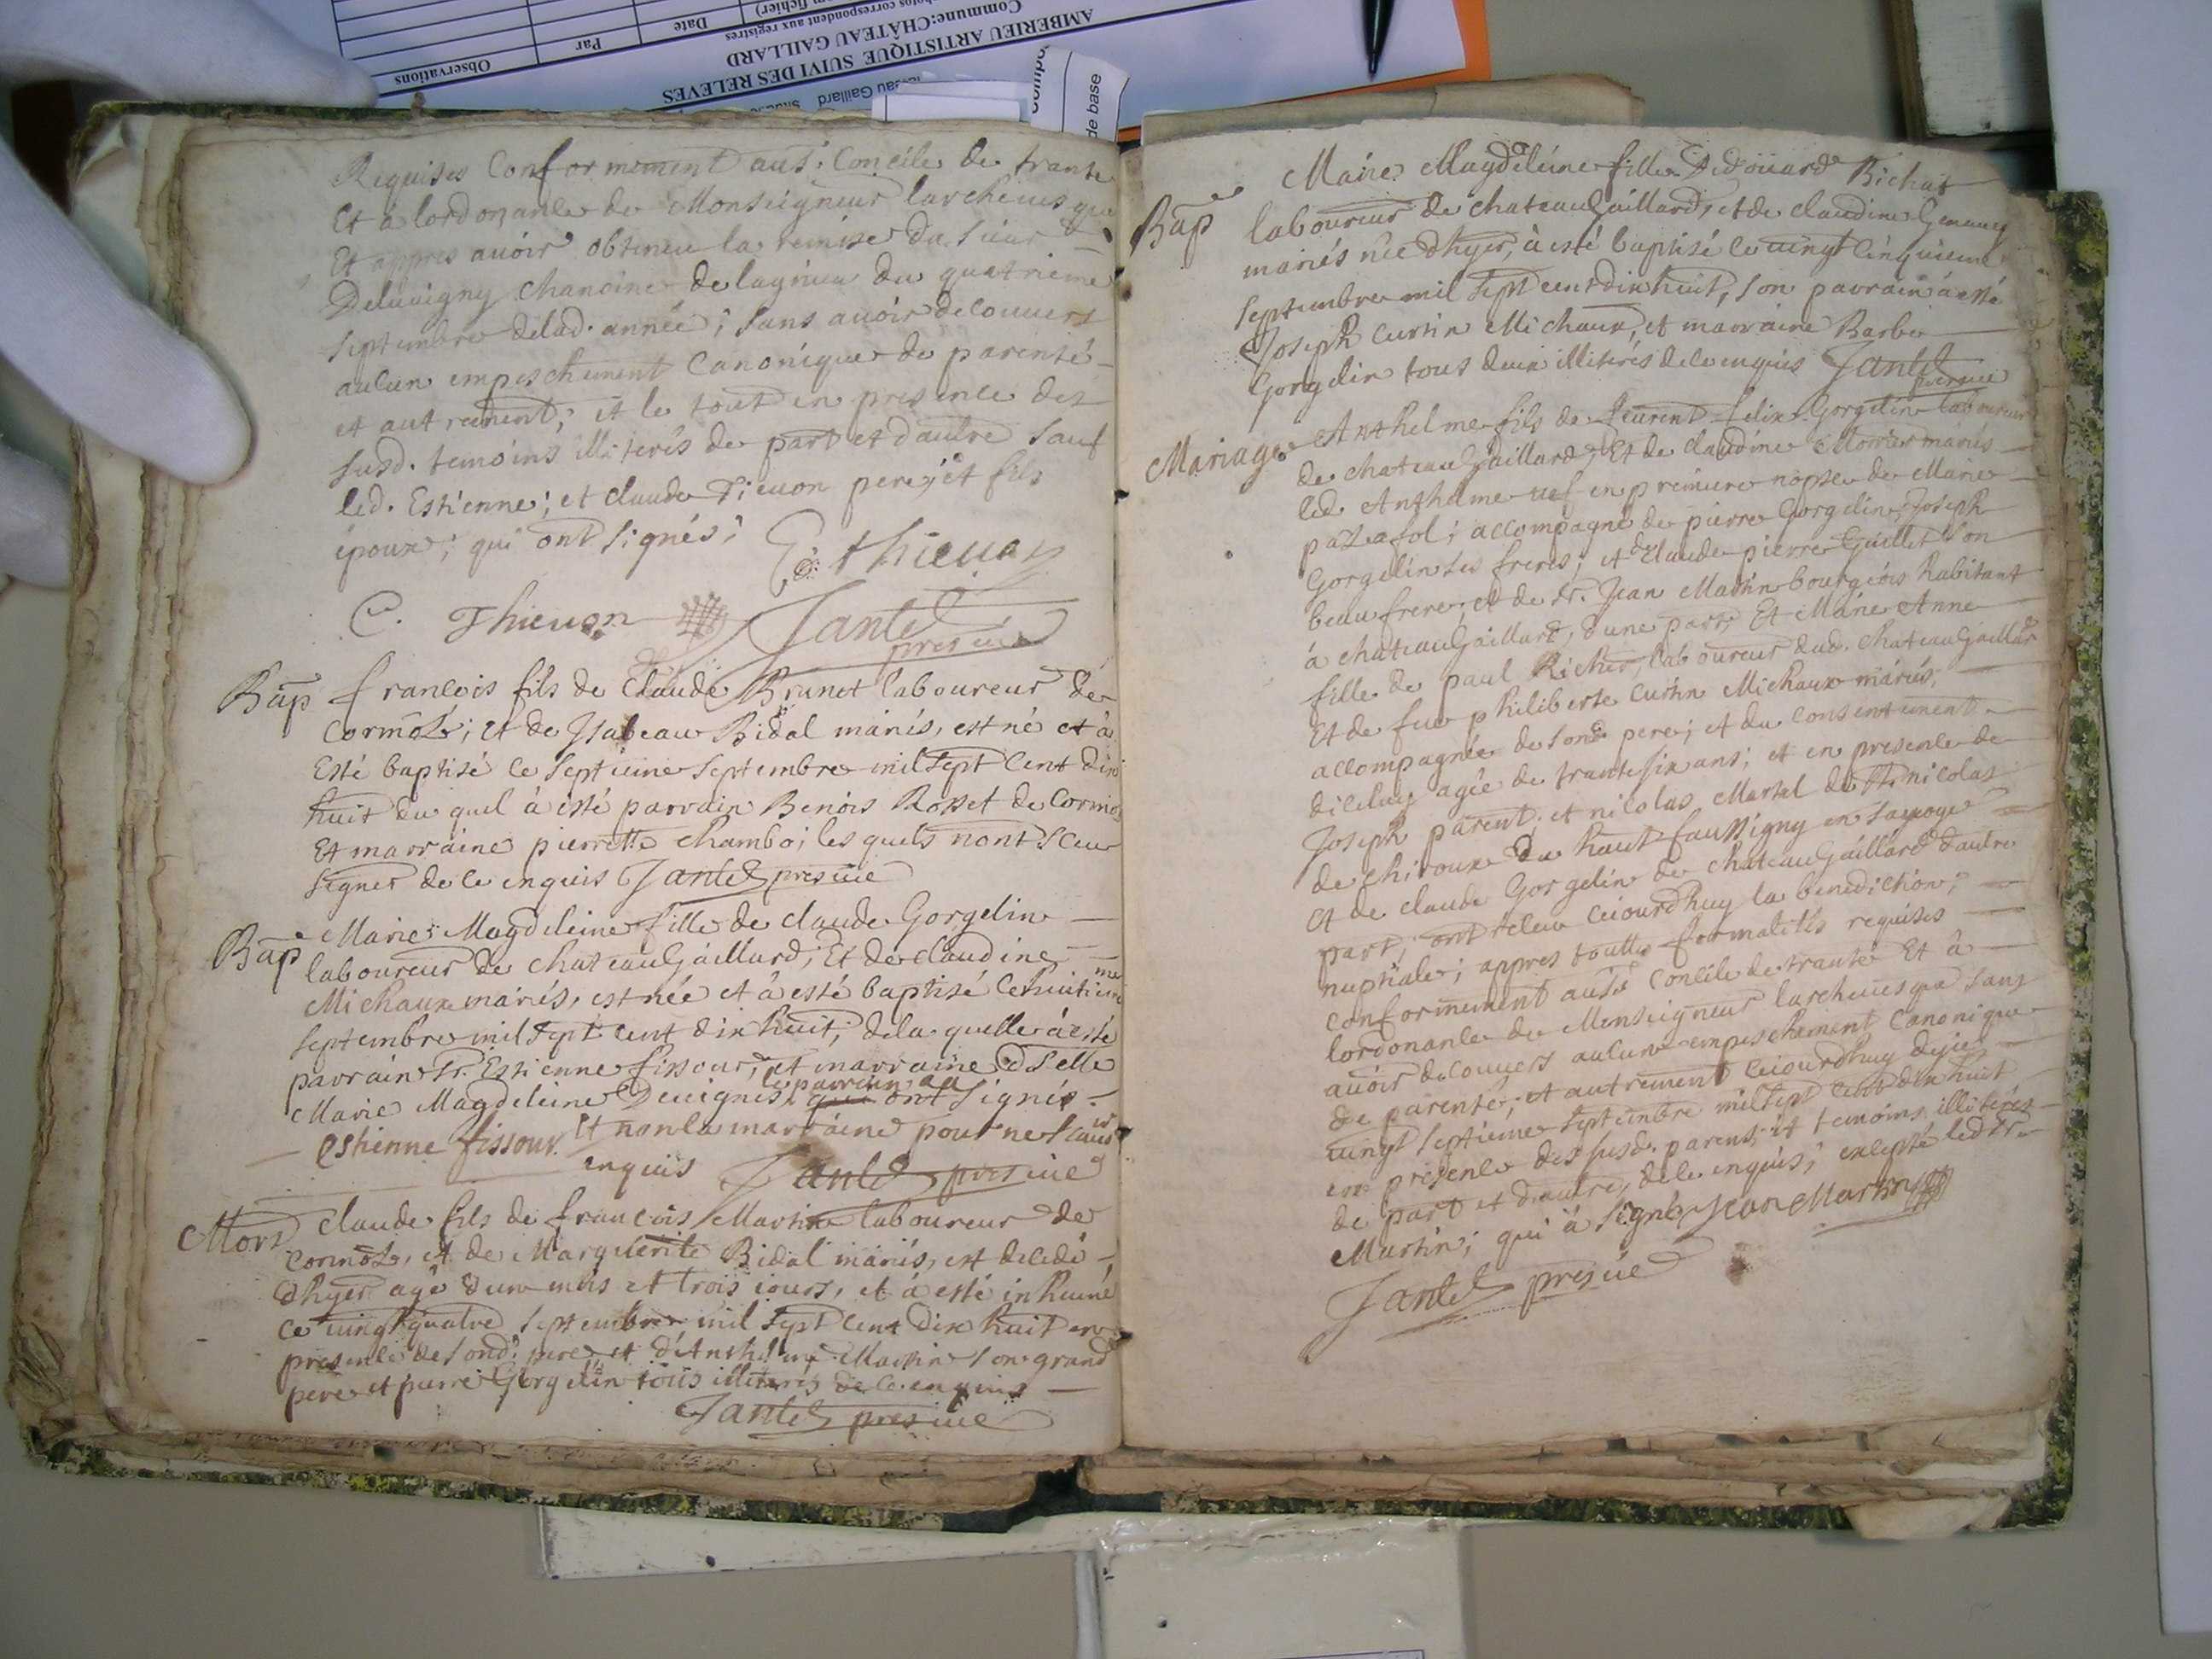 Observations
Par
Date
AMBERIEU ARTISTIQUE SUIVI DES RELEVES
Commune:CHÂTEAU GAILLARD
correspondent aux registres
fichier)
au Gaillard
de base
Requises Conformement au st. Concile de trante
Et à lordonance de Monseigneur larcheuesque
Et appres auoir obteneu la remise du Sieur
Deluuigny chanoine de lagnieu du quatrieme
Septembre delad. année; Sans auoir decouuert
aucun empeschement Canonique de parenté
et autrement; et le tout en presence des
susd. temoins illiterés de part et dautre Sauf
led. Estienne; et claude Thieuon pere; et fils
epoux; qui ont signés;
E. thieuon
C. Thieuon Jantet
presuie
Bap francois fils de Claude Brunet laboureur de
Cormoz; et de Isabeau Bidal mariés, est né et à
Esté baptisé le Septieme Septembre mil sept Cent dix
huit du quel à esté parrain Benois Rosset de Cormoz
Et marraine pierrette Chambo; les quels nont Sceu
signer de ce enquis Jantet presuie
Bap Marie Magdeleine fille de claude Gorgelin
laboureur de chateauGaillard; Et de claudine
Michaux mariés, est née et à esté baptisé le huitieme
Septembre mil sept cent dix huit; dela quelle à esté
parrain Sr. Estienne fissour; et marraine dselle
Marie Magdeleine Deuignes le parrain a qui ont signés
Et non la marraine pour ne scauoir
estienne fissour
enquis Jantet presuie
Mort Claude fils de francois Martin laboureur de
Cormoz, et de Marguerite Bidal mariés, est decedé
dhyer agé dun mois et trois iours, et à esté inhumé
ce uingt quatre Septembre mil Sept Cent dix huit en
presence de Sond. pere et d'Anthelme Martin Son grand
pere et pierre Gorgelin tous illiterés de ce enquis
Jantet presuie
Bap Marie Magdeleine fille Dedoüard Bichat
laboureur de chateauGaillard, et de claudine
mariés née dhyer, à esté baptisé le uingt Cinquieme
septembre mil Sept cent dix huit, Son parrain à esté
Joseph curtin Michaux, et marraine Barbe
Gorgelin tous deux illiterés de ce enquis Jantet
presuie
Mariage Anthelme fils de Leurent felix Gorgelin laboureur
de chateauGaillard; Et de claudine Morier mariés
led. Anthelme uef en premiere nopse de Marie
pazafol; accompagné de pierre Gorgelin, Joseph
Gorgelin ses freres; et de Claude pierre Guillet Son
beaufrere; et de sr. Jean Martin bourgeois habitant
à chateauGaillard, dune part; Et Marie Anne
fille de paul Richer, laboureur dud. chateauGaillard
Et de fue philiberte Curtin Michaux mariés,
accompagnée de Sond. pere; et du consentement
diceluy agée de trantesix ans; et en presence de
Joseph parent; et nicolas Martel de St. nicolas
de chiroux du haut faussigny en Sauoye
et de claude Gorgelin de chateauGaillard dautre
part; ont receu Ceiourdhuy la benediction;
nuptiale; appres toutte formalités requises
conformement au st. Concile de trante Et à
lordonance de Monseigneur larcheuesque Sans
auoir decouuers aucune empeschement Canonique
de parenté; et autrement Ceiourdhuy dyie
uingt septieme Septembre mil Sept Cent dix huit
en presence des susd. parens et temoins illiterés
de part et dautre, de ce enquis; excepté led sr.
Martin; qui à signé Jean Martin
Jantet presuie